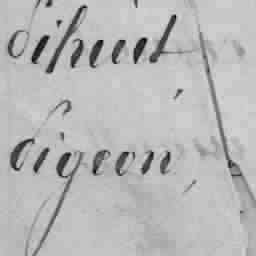 dihuit
digeon,